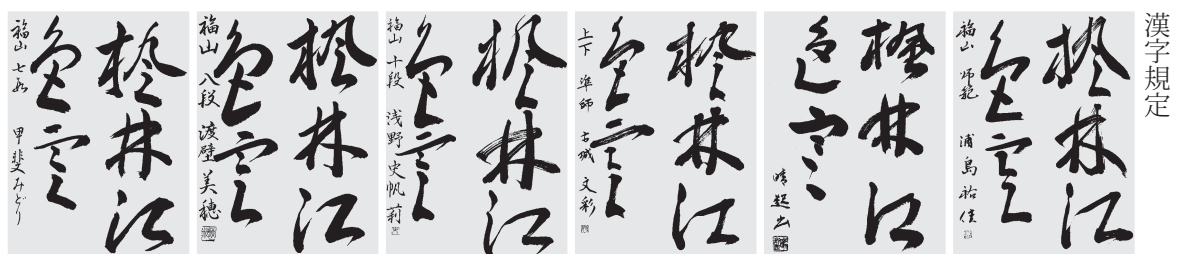 漢字規定
楓林江
色寒
福山 師範 浦島
楓林江
色寒
楓林江
色寒
上下 準師 古城 文彩
楓林江
色寒
福山 十段 浅野 史帆莉
楓林江
色寒
福山 八段 渡壁 美穂
楓林江
色寒
福山 七段 甲斐みどり